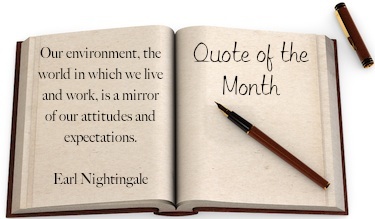 Our environment, the
world in which we live
and work, is a mirror
of our attitudes and
expectations.
Earl Nightingale
Quote of the
Month